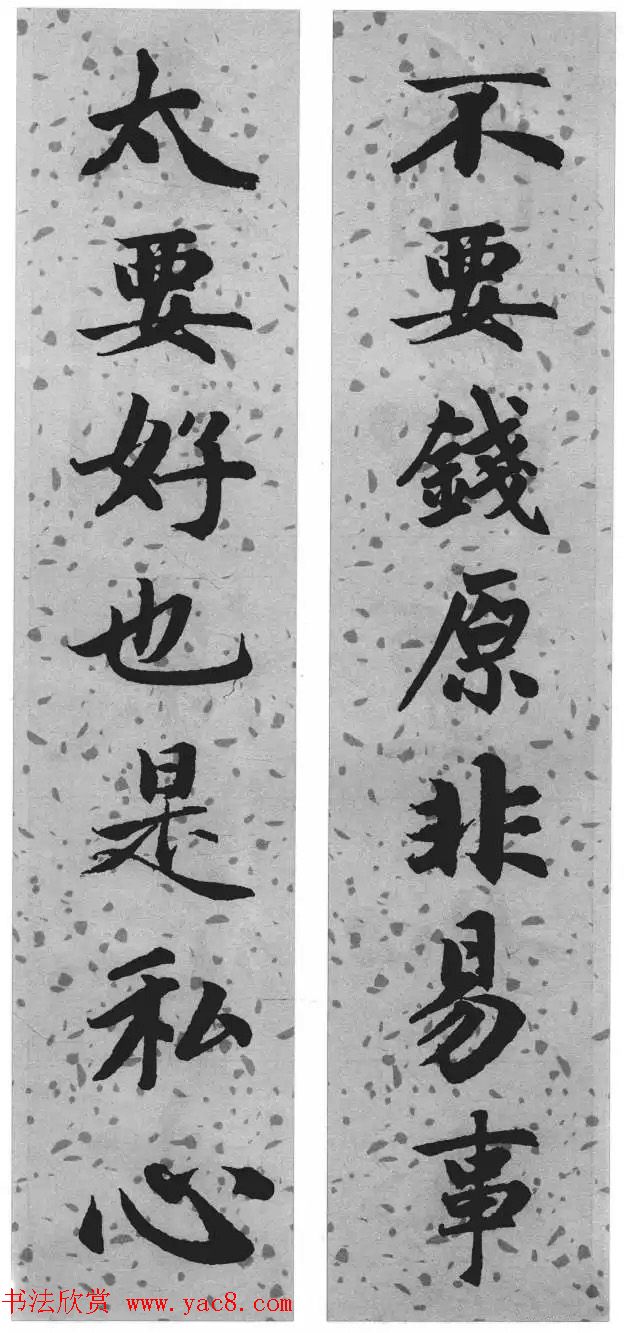 不要錢原非易事
太要好也是私心
书法欣赏 www.yac8.com